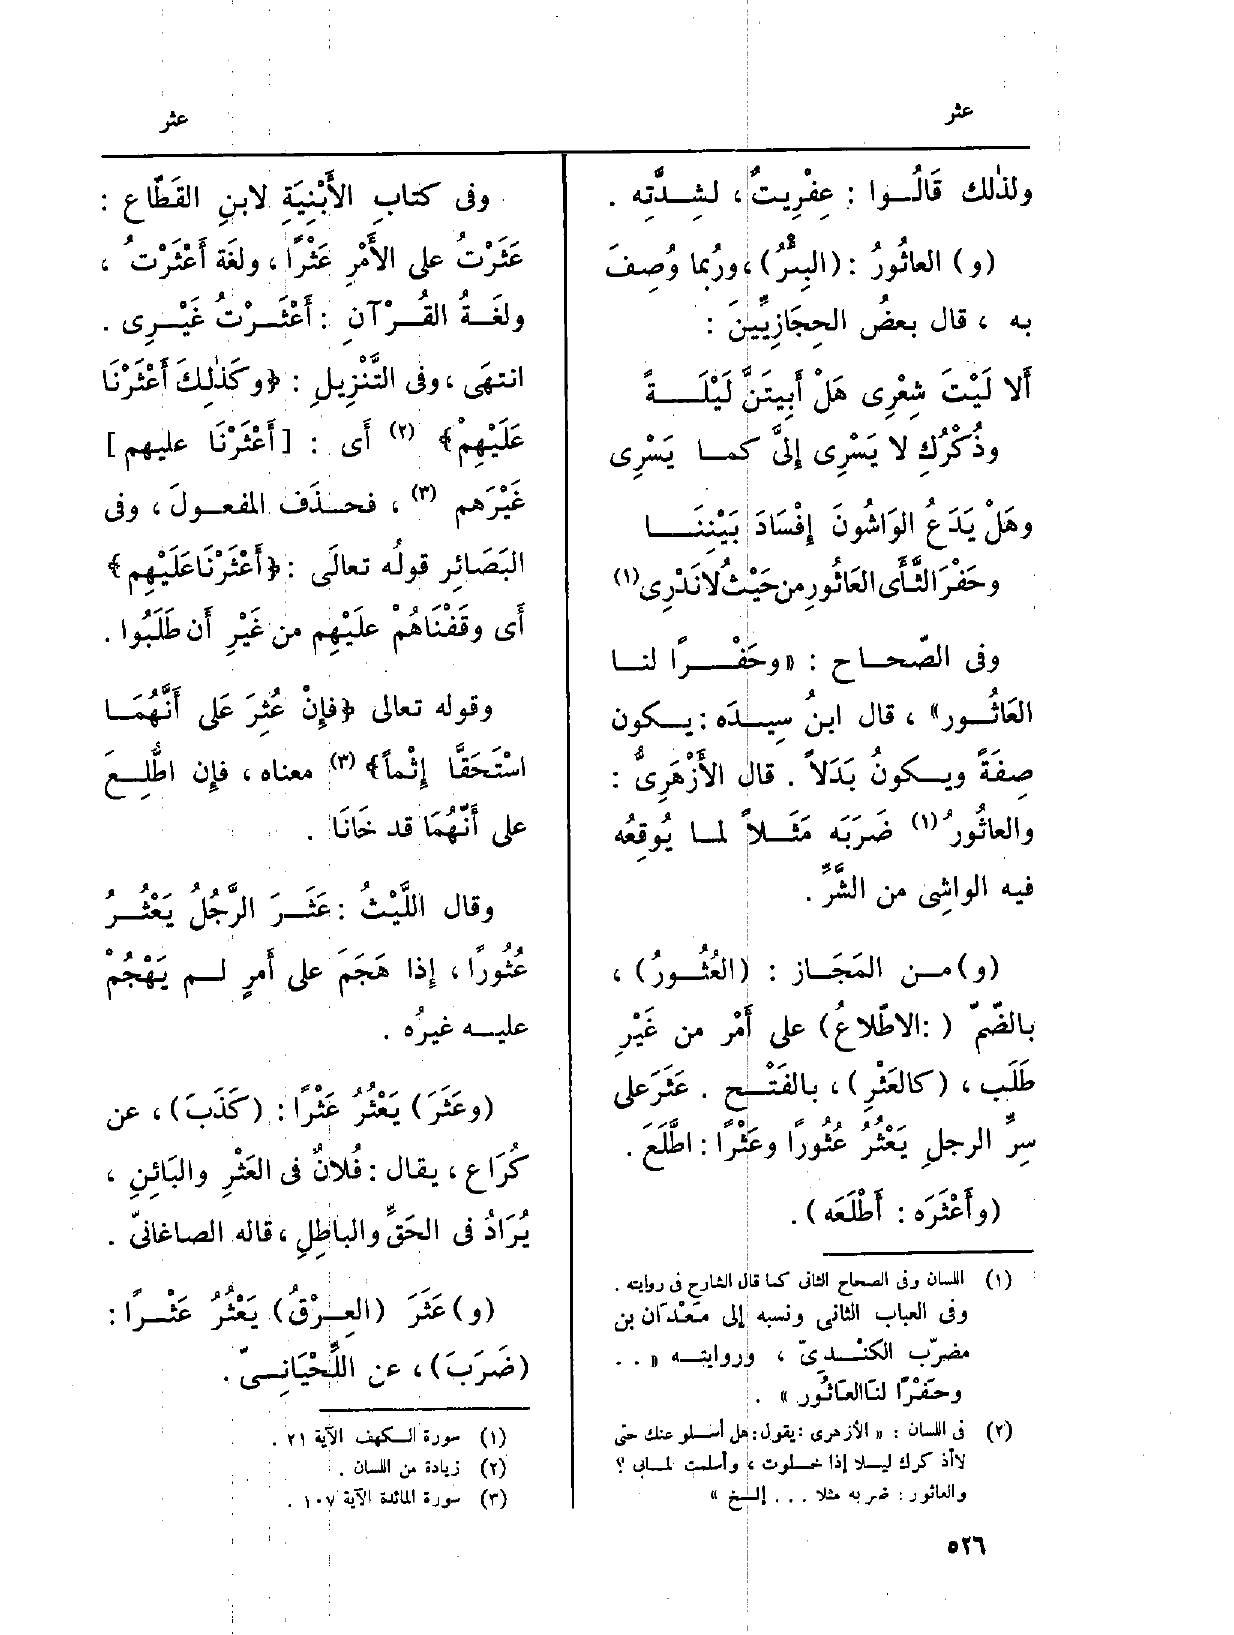 عثر
عثر
ولذٰلك قَالُوا : عِفْرِيتٌ ، لشِدَّتِه .
(و) العاثُورُ : (البِئْرُ) ، ورُبما وُصِفَ
به ، قال بعضُ الحِجَازِيِّينَ :
أَلا لَيْتَ شِعْرِى هَلْ أَبِيتَنَّ لَيْلَةً
وذُكْرُكِ لا يَسْرِى إِلىَّ كما يَسْرِى
وهَلْ يَدَعُ الوَاشُونَ إِفْسَادَ بَيْنِنَا
وحَفْرَ الثَّأَى العَاثُورِ من حَيْثُ لا نَدْرِى (١)
وفى الصّحاح : « وحَفْرًا لنا
العَاثُور » ، قال ابنُ سِيدَه : يكون
صِفَةً ويكونُ بَدَلاً . قال الأَزْهَرِىُّ :
والعاثُورُ (١) ضَرَبَه مَثَلاً لما يُوقِعُه
فيه الواشِى من الشَّرِّ .
(و) من المَجَاز : (العُثُورُ) ،
بالضّمّ ( : الاطّلاعُ) على أَمْر من غَيْرِ
طَلَب ، (كالعَثْرِ ) ، بالفَتْح . عَثَرَ على
سِرِّ الرجلِ يَعْثُرُ عُثُورًا وعَثْرًا : اطَّلَعَ .
(وأَعْثَرَه : أَطْلَعَه ) .
(١) اللسان وفى الصحاح الثانى كما قال الشارح فى روايته .
وفى العباب الثانى ونسبه إلى مَعْدان بن
مضرّب الكنْدِىّ ، وروايته « . .
وحَفْرًا لنا العَاثُور » .
(٢) فى اللسان : « الأزهرى : يقول : هل أسلو عنك حتى
لا أذكرك ليلا إذا خلوت ، وأسلمت لما بى ؟
والعاثور : ضربه مثلا . . . إلخ »
وفى كتابِ الأَبْنِيَةِ لابنِ القَطّاعِ :
عَثَرْتُ على الأَمْرِ عَثْرًا ، ولغة أَعْثَرْتُ ،
ولغَةُ القُرْآنِ : أَعْثَرْتُ غَيْرِى .
انتهَى ، وفى التَّنْزِيلِ : ﴿وكَذٰلِكَ أَعْثَرْنَا
عَلَيْهِمْ﴾ (٢) أَى : [أَعْثَرْنَا عليهم]
غَيْرَهم (٣) ، فحذَف المفعولَ ، وفى
البَصَائِر قولُه تعالَى : ﴿أَعْثَرْنَا عَلَيْهِم﴾
أَى وقَفْنَاهُمْ علَيْهِم من غَيْرِ أَن طَلَبُوا .
وقوله تعالى ﴿فإِنْ عُثِرَ عَلى أَنَّهُمَا
اسْتَحَقَّا إِثْماً﴾ (٣) معناه ، فإِن اطُّلِعَ
على أَنَّهُمَا قد خَانَا .
وقال اللَّيْثُ : عَثَرَ الرَّجُلُ يَعْثُرُ
عُثُورًا ، إذا هَجَمَ على أَمرٍ لم يَهْجُمْ
عليه غيرُه .
(وعَثَرَ) يَعْثُرُ عَثْرًا : (كَذَبَ) ، عن
كُرَاع ، يقال : فُلانٌ فى العَثْرِ والبَائِنِ ،
يُرَادُ فى الحَقِّ والباطِلِ ، قاله الصاغانىّ .
(و) عَثَرَ (العِرْقُ) يَعْثُرُ عَثْرًا :
(ضَرَبَ) ، عن اللِّحْيَانِىّ .
(١) سورة الكهف الآية ٢١ .
(٢) زيادة من اللسان .
(٣) سورة المائدة الآية ١٠٧ .
٥٢٦